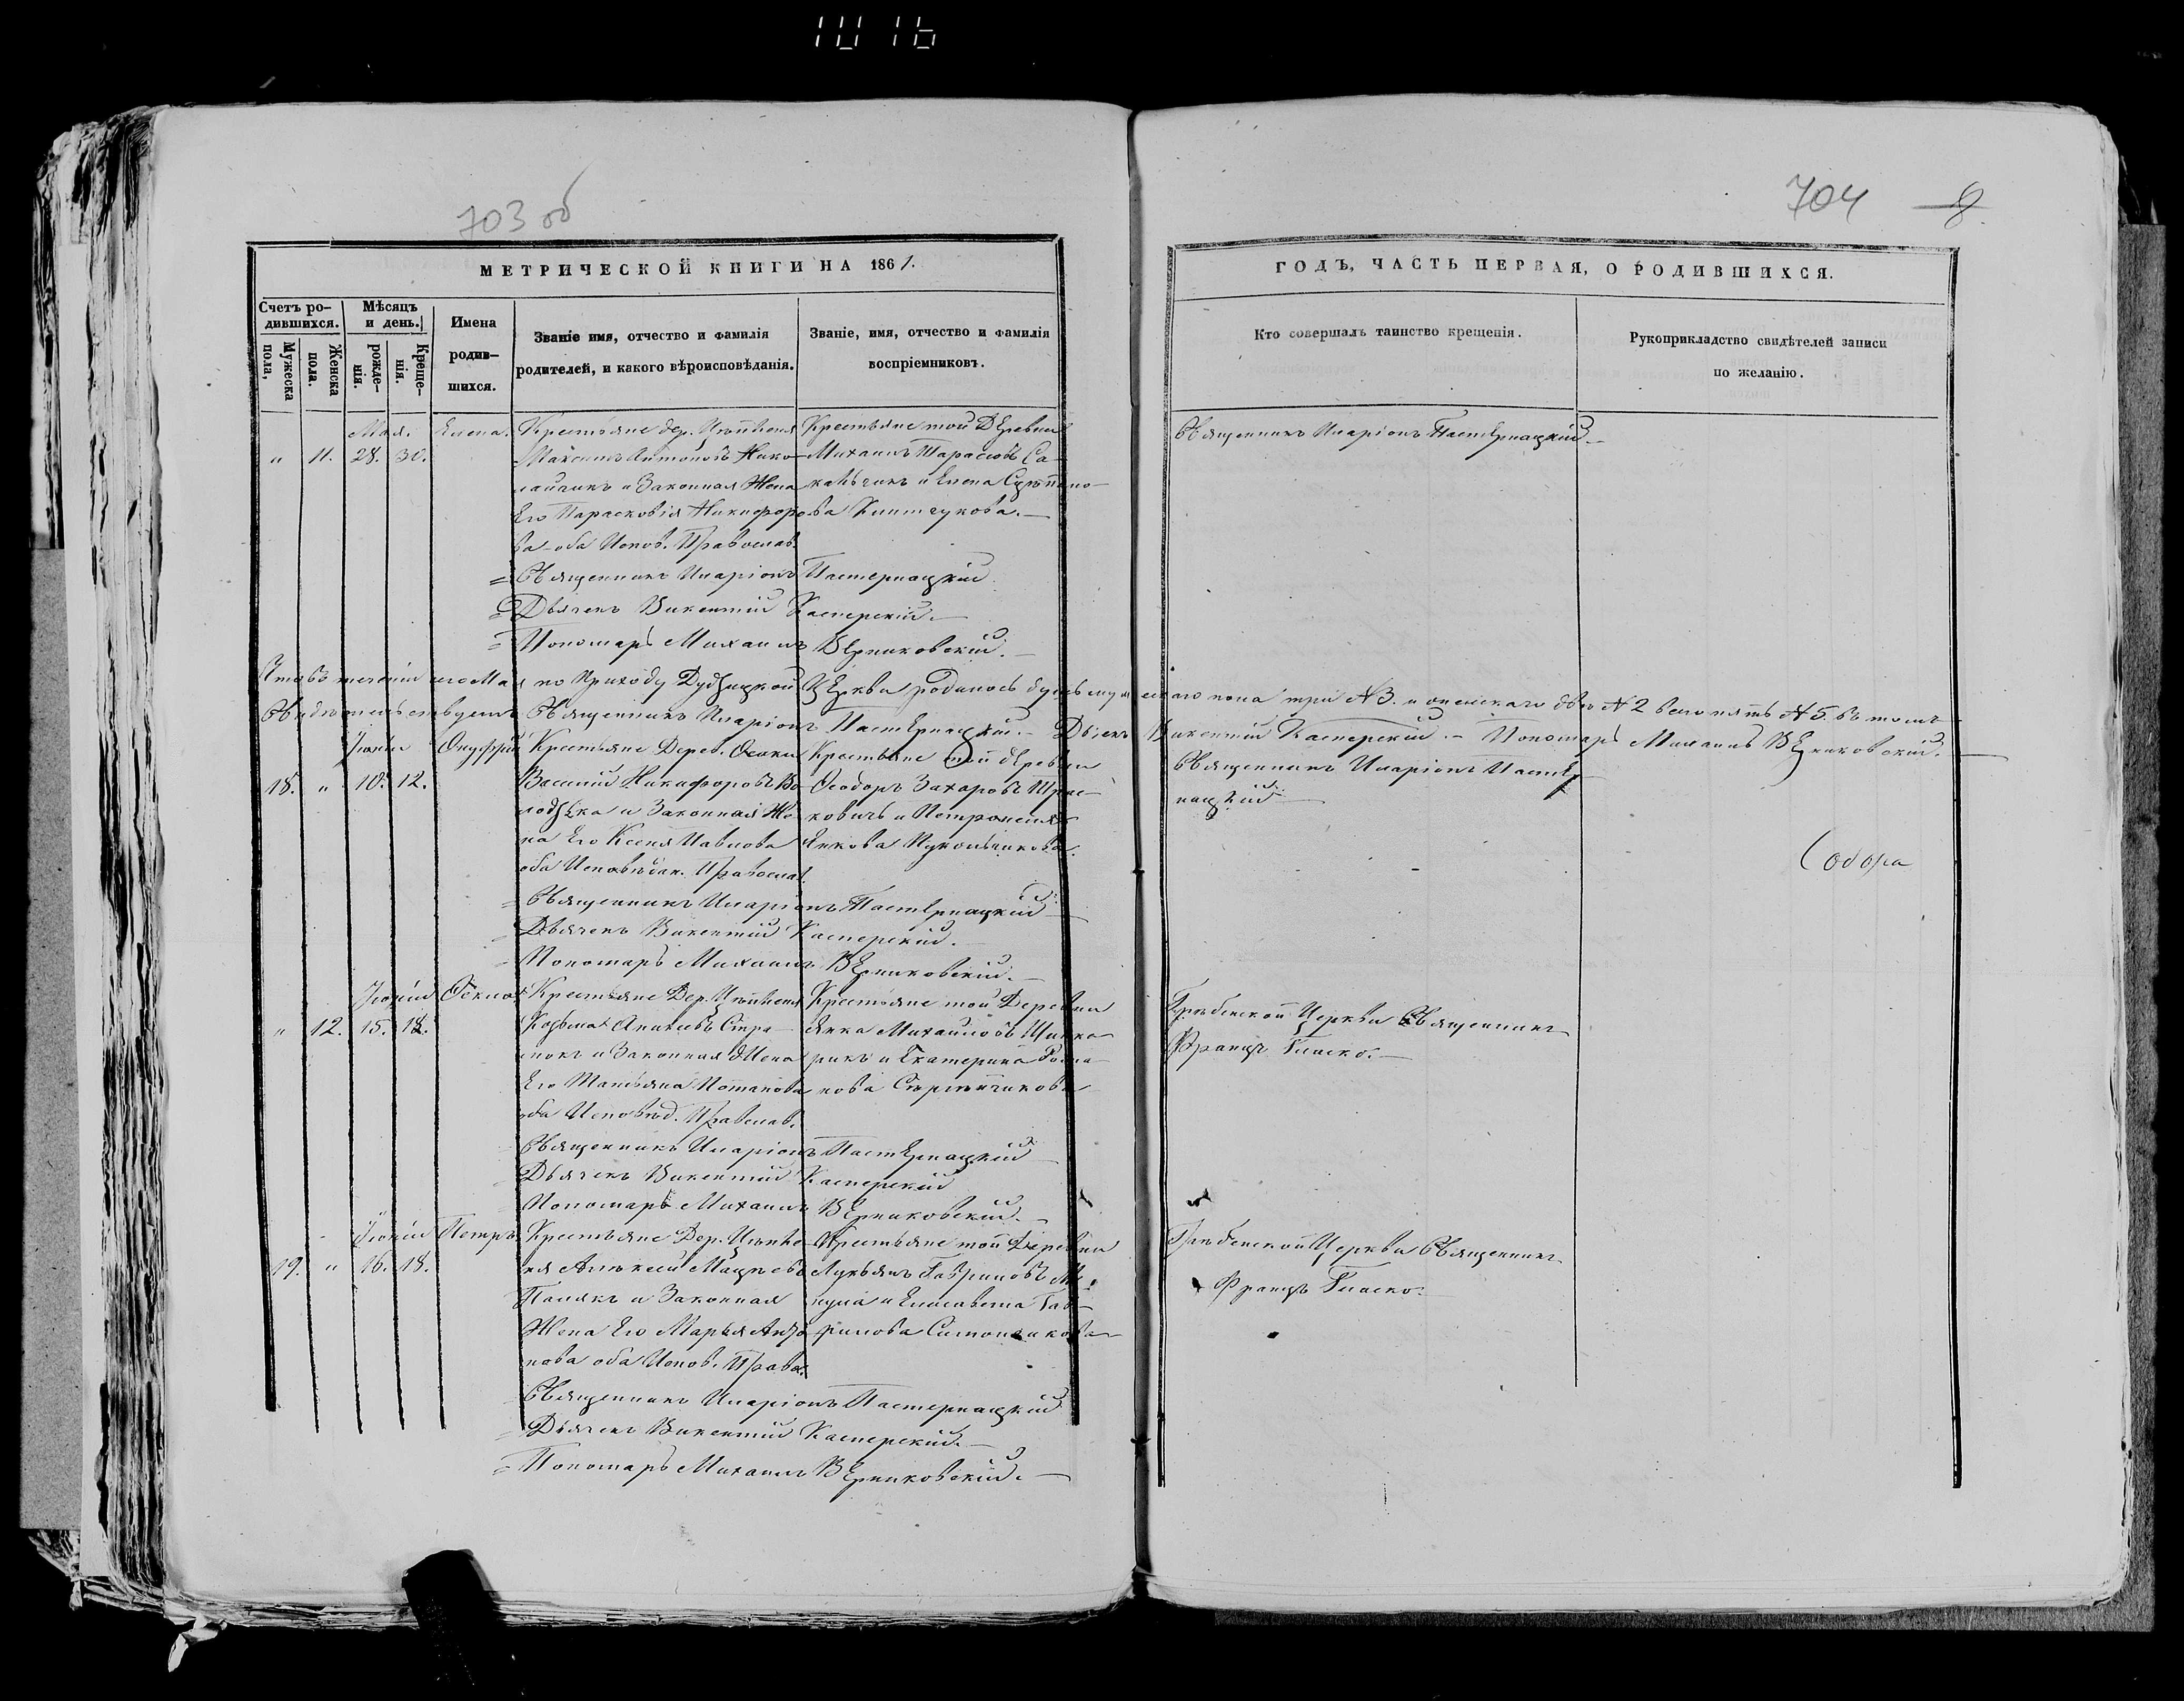 703 об
704 8
МЕТРИЧЕСКОЙ КНИГИ НА 1861.
ГОДЪ, ЧАСТЬ ПЕРВАЯ, О РОДИВШИХСЯ.
Счетъ ро-
дившихся.
Мѣсяцъ
и день.
Имена
родив-
шихся.
Мужеска
пола,
Женска
пола.
рожде-
нія.
Креще-
нія.
Званіе имя, отчество и фамилія
родителей, и какого вѣроисповѣданія.
Званіе, имя, отчество и фамилія
воспріемниковъ.
Кто совершалъ таинство крещенія.
Рукоприкладство свидѣтелей записи
по желанію.
Мая.
" 11. 28. 30.
Елена.
Крестьяне дер.
Максимъ Антоновъ Нико-
лайчикъ и Законная Жена
Его Парасковія Никифоро-
ва оба Испов. Православ.
Крестьяне той Деревни
Михаилъ Тарасовъ Са-
и Елена
Священникъ Иларіонъ Пастернацкій.
Священникъ Иларіонъ Пастернацкій
Дьячекъ Викентій Касперскій.
Пономарь Михаилъ Верниковскій.
Что въ теченіи сего Мая по Приходу Дудзицкой Церкви родилось душъ мужескаго пола три №3. и женскаго двѣ №2 всего пять №5. въ томъ
Свидѣтельствуемъ Священникъ Иларіонъ Пастернацкій. Дьячекъ Викентій Касперскій. Пономарь Михаилъ Верниковскій.
Іюнь
18. " 10. 12.
Онуфрій
Крестьяне Дерев. Осоки
Василій Никифоровъ Во-
лодзька и Законная Же-
на Его Ксенія Павлова
оба Исповѣдан. Православ.
Крестьяне той деревни
Ѳеодоръ Захаровъ
ковичъ и Петронелия
Янкова
Священникъ Иларіонъ Пастер-
нацкій
Собора
Священникъ Иларіонъ Пастернацкій
Дьячекъ Викентій Касперскій.
Пономарь Михаилъ Верниковскій.
Іюнія
" 12. 15. 18.
Ѳекла
Крестьяне Дер.
Козьма
и Законная Жена
Его Татьяна Потапова
оба Исповѣд. Православ.
Крестьяне той Деревни
Янка Михайловъ
рикъ и Екатерина Рома-
нова
Церкви Священникъ
Францъ Гласко.
Священникъ Иларіонъ Пастернацкій
Дьячекъ Викентій Касперскій
Пономарь Михаилъ Верниковскій.
Іюнія
19. " 16. 18.
Петръ
Крестьяне Дер.
Алексей
и Законная
Жена Его Марья Анто-
нова оба Испов. Правос.
Крестьяне той Деревни
Лукьянъ Гавриловъ
и Елисавета Гав-
рилова
Церкви Священникъ
Францъ Гласко.
Священникъ Иларіонъ Пастернацкій
Дьячекъ Викентій Касперскій.
Пономарь Михаилъ Верниковскій.